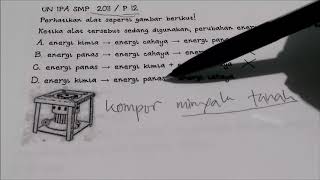 UN IPA SMP 2013 / P 12
Perhatikan alat seperti gambar berikut!
Ketika alat tersebut sedang digunakan, perubahan energi
A. energi kimia → energi cahaya → energi
B. energi panas → energi cahaya → energi
C. energi panas → energi kimia +
D. energi kimia → energi panas
kompor minyak tanah